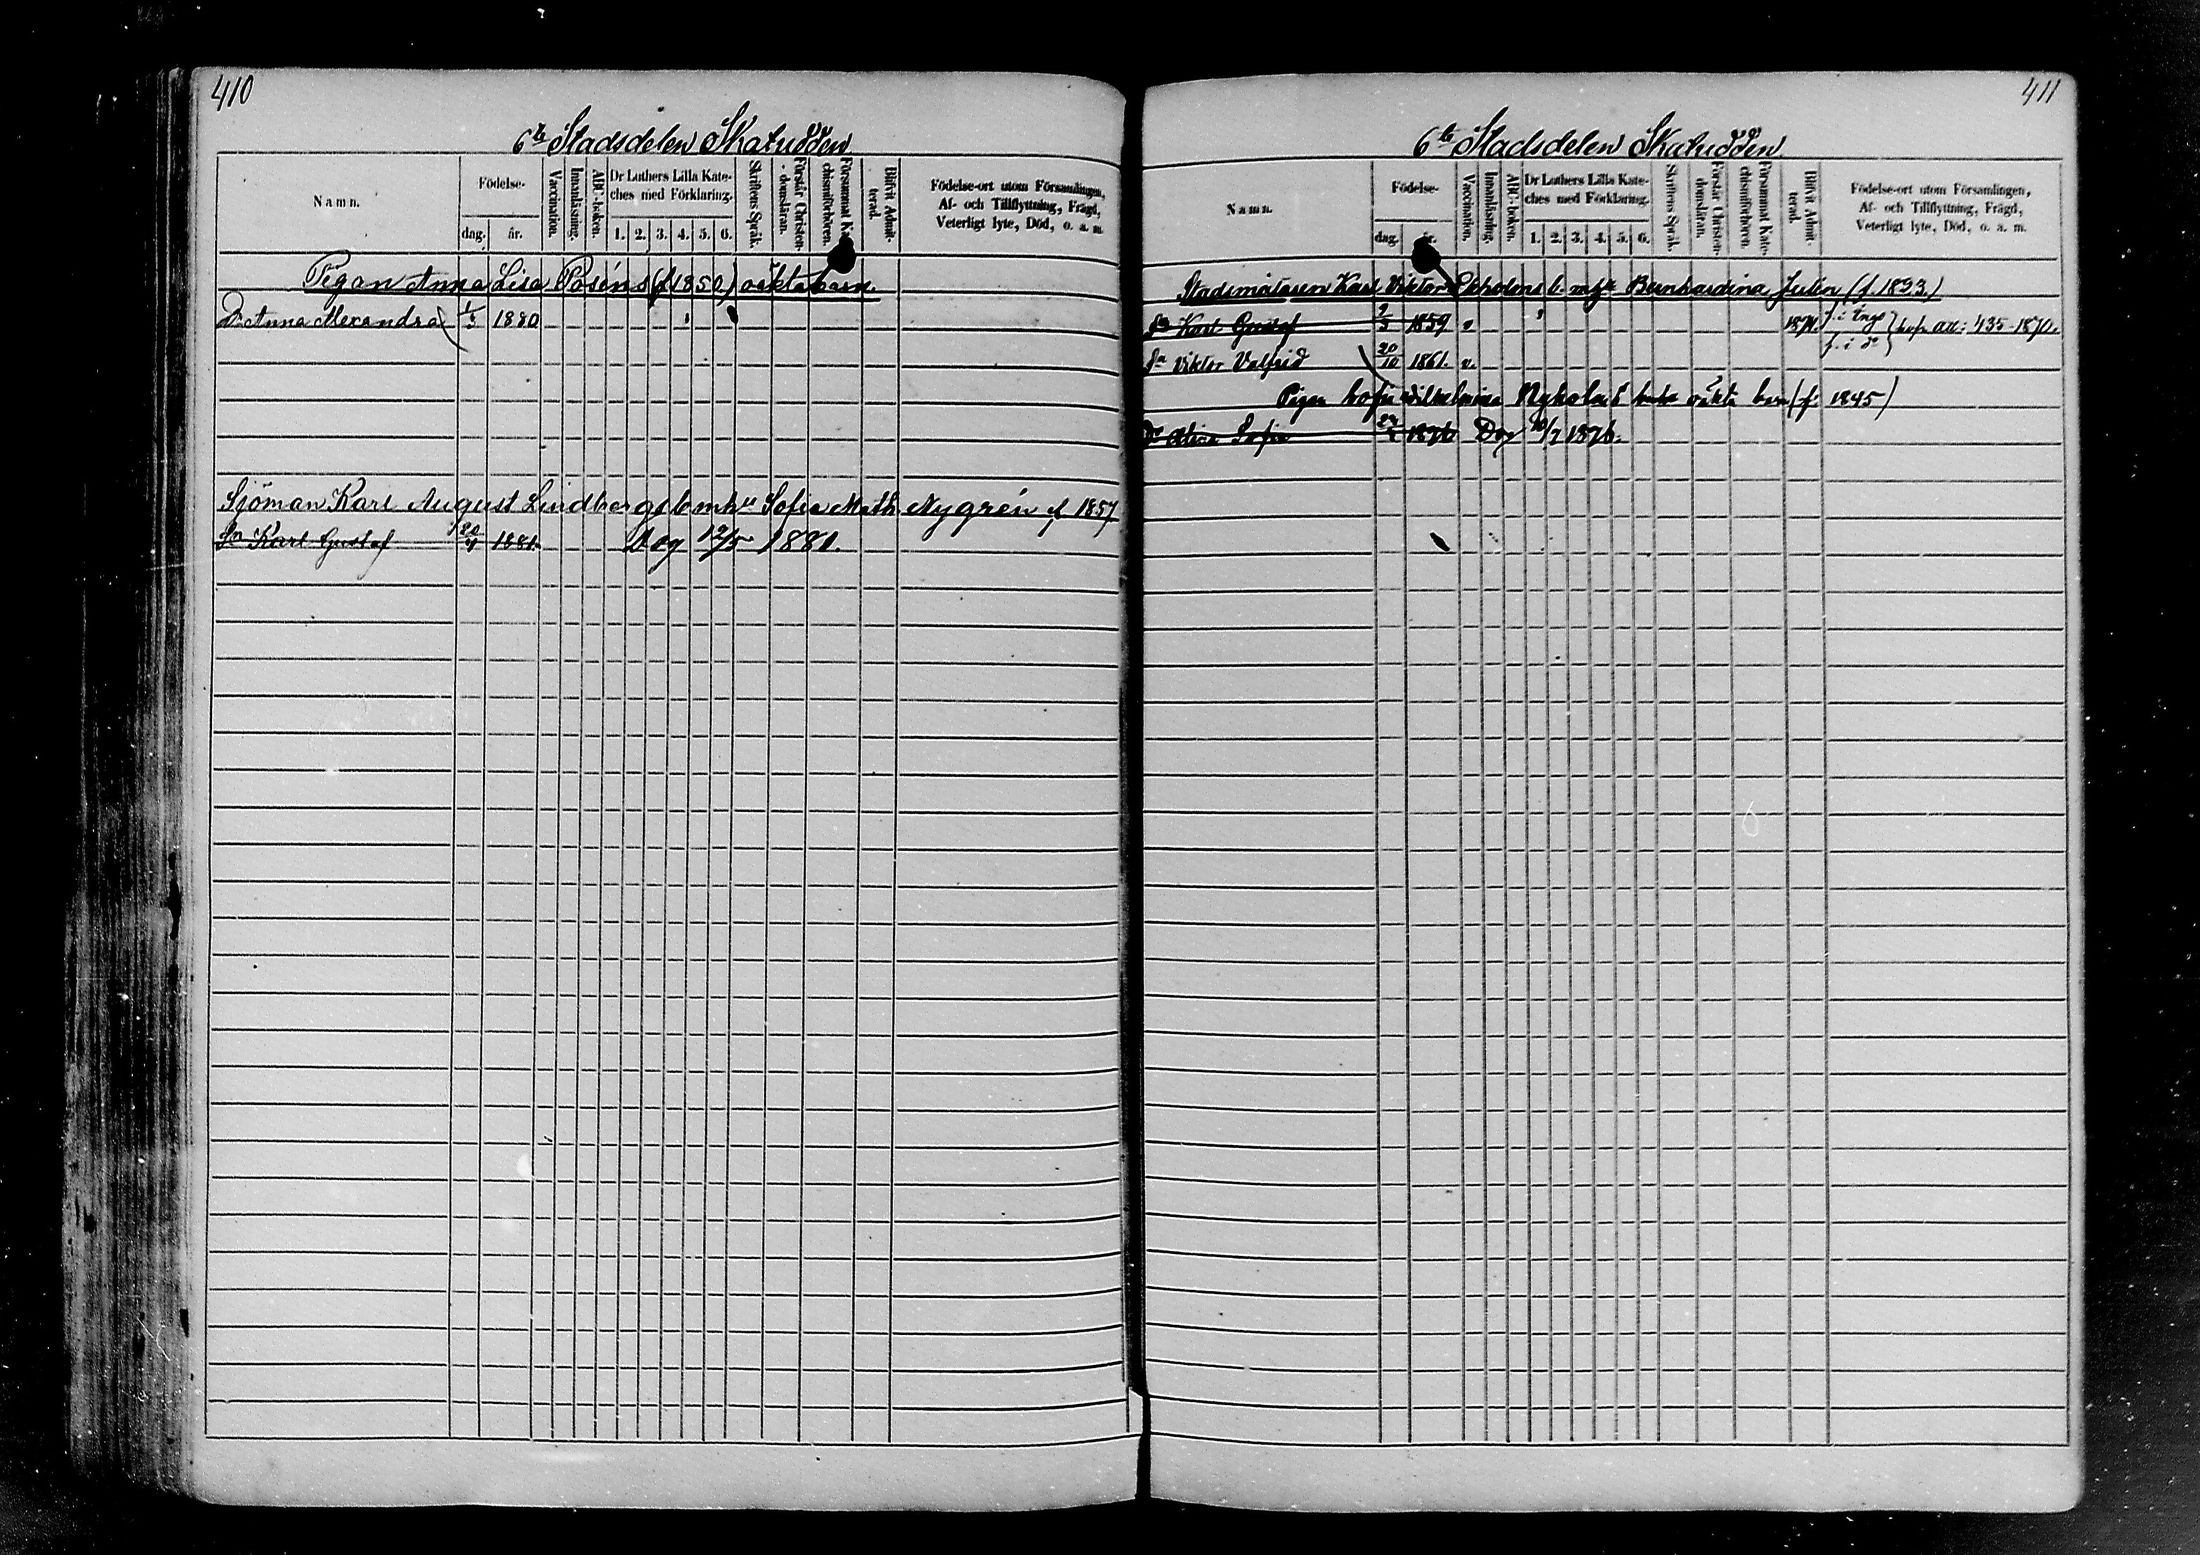 410
6te Stadsdelen Skatudden
Namn.
Födelse-
dag.
år.
Vaccination.
Innanläsning.
ABC-boken.
Dr Luthers Lilla Kate-
ches med Förklaring.
1. 2. 3. 4. 5. 6.
Skriftens Språk.
Förstår Christen-
domsläran.
Försummat Kate-
chismiförhören.
Blifvit Admit-
terad.
Födelse-ort utom Församlingen,
Af- och Tillflyttning, Frägd,
Veterligt lyte, Död, o. a. m.
Pigan Anna Lisa Poséns (f 1850) oäkta barn.
Dr Anna Alexandra 1/3 1880
Sjöman Karl August Lindbergs b mh Sofia Math. Nygrén f 1857
Sn Karl Gustaf 20/4 1881. Dog 12/5 1881.
411
6te Stadsdelen Skatudden.
Namn.
Födelse-
dag.
år.
Vaccination.
Innanläsning.
ABC-boken.
Dr Luthers Lilla Kate-
ches med Förklaring.
1. 2. 3. 4. 5. 6.
Skriftens Språk.
Förstår Christen-
domsläran.
Försummat Kate-
chismiförhören.
Blifvit Admit-
terad.
Födelse-ort utom Församlingen,
Af- och Tillflyttning, Frägd,
Veterligt lyte, Död, o. a. m.
Karl Viktor Ekholms b Bernhardina Julin (f. 1833.)
Sn Karl Gustaf 9/3 1859 v 435-1870.
Sn Viktor Valfrid 20/10 1861. v. f. i do
Pigan Sofia Vilhelmina Nyholms oäkta barn (f. 1845)
Sofia 1876 Dog 1876.